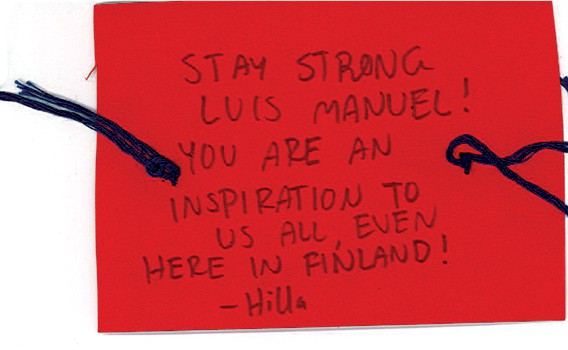 STAY STRONG
LUIS MANUEL!
YOU ARE AN
INSPIRATION TO
US ALL, EVEN
HERE IN FINLAND!
-Hilla